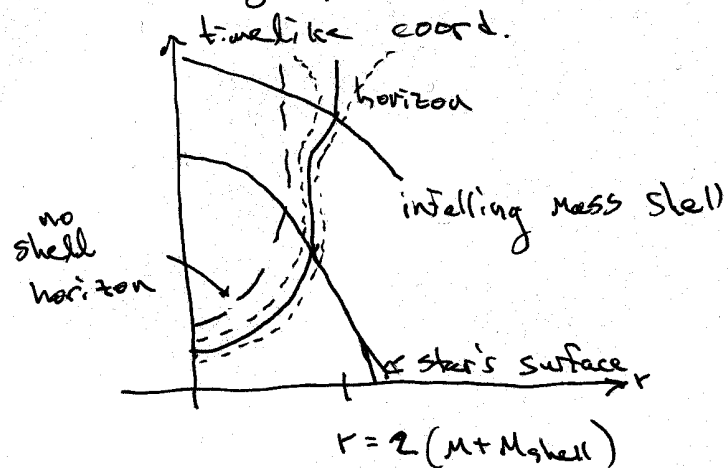 timelike coord.
horizon
infalling mass shell
no
shell
horizon
star's surface
r
r = 2 (M + Mshell)